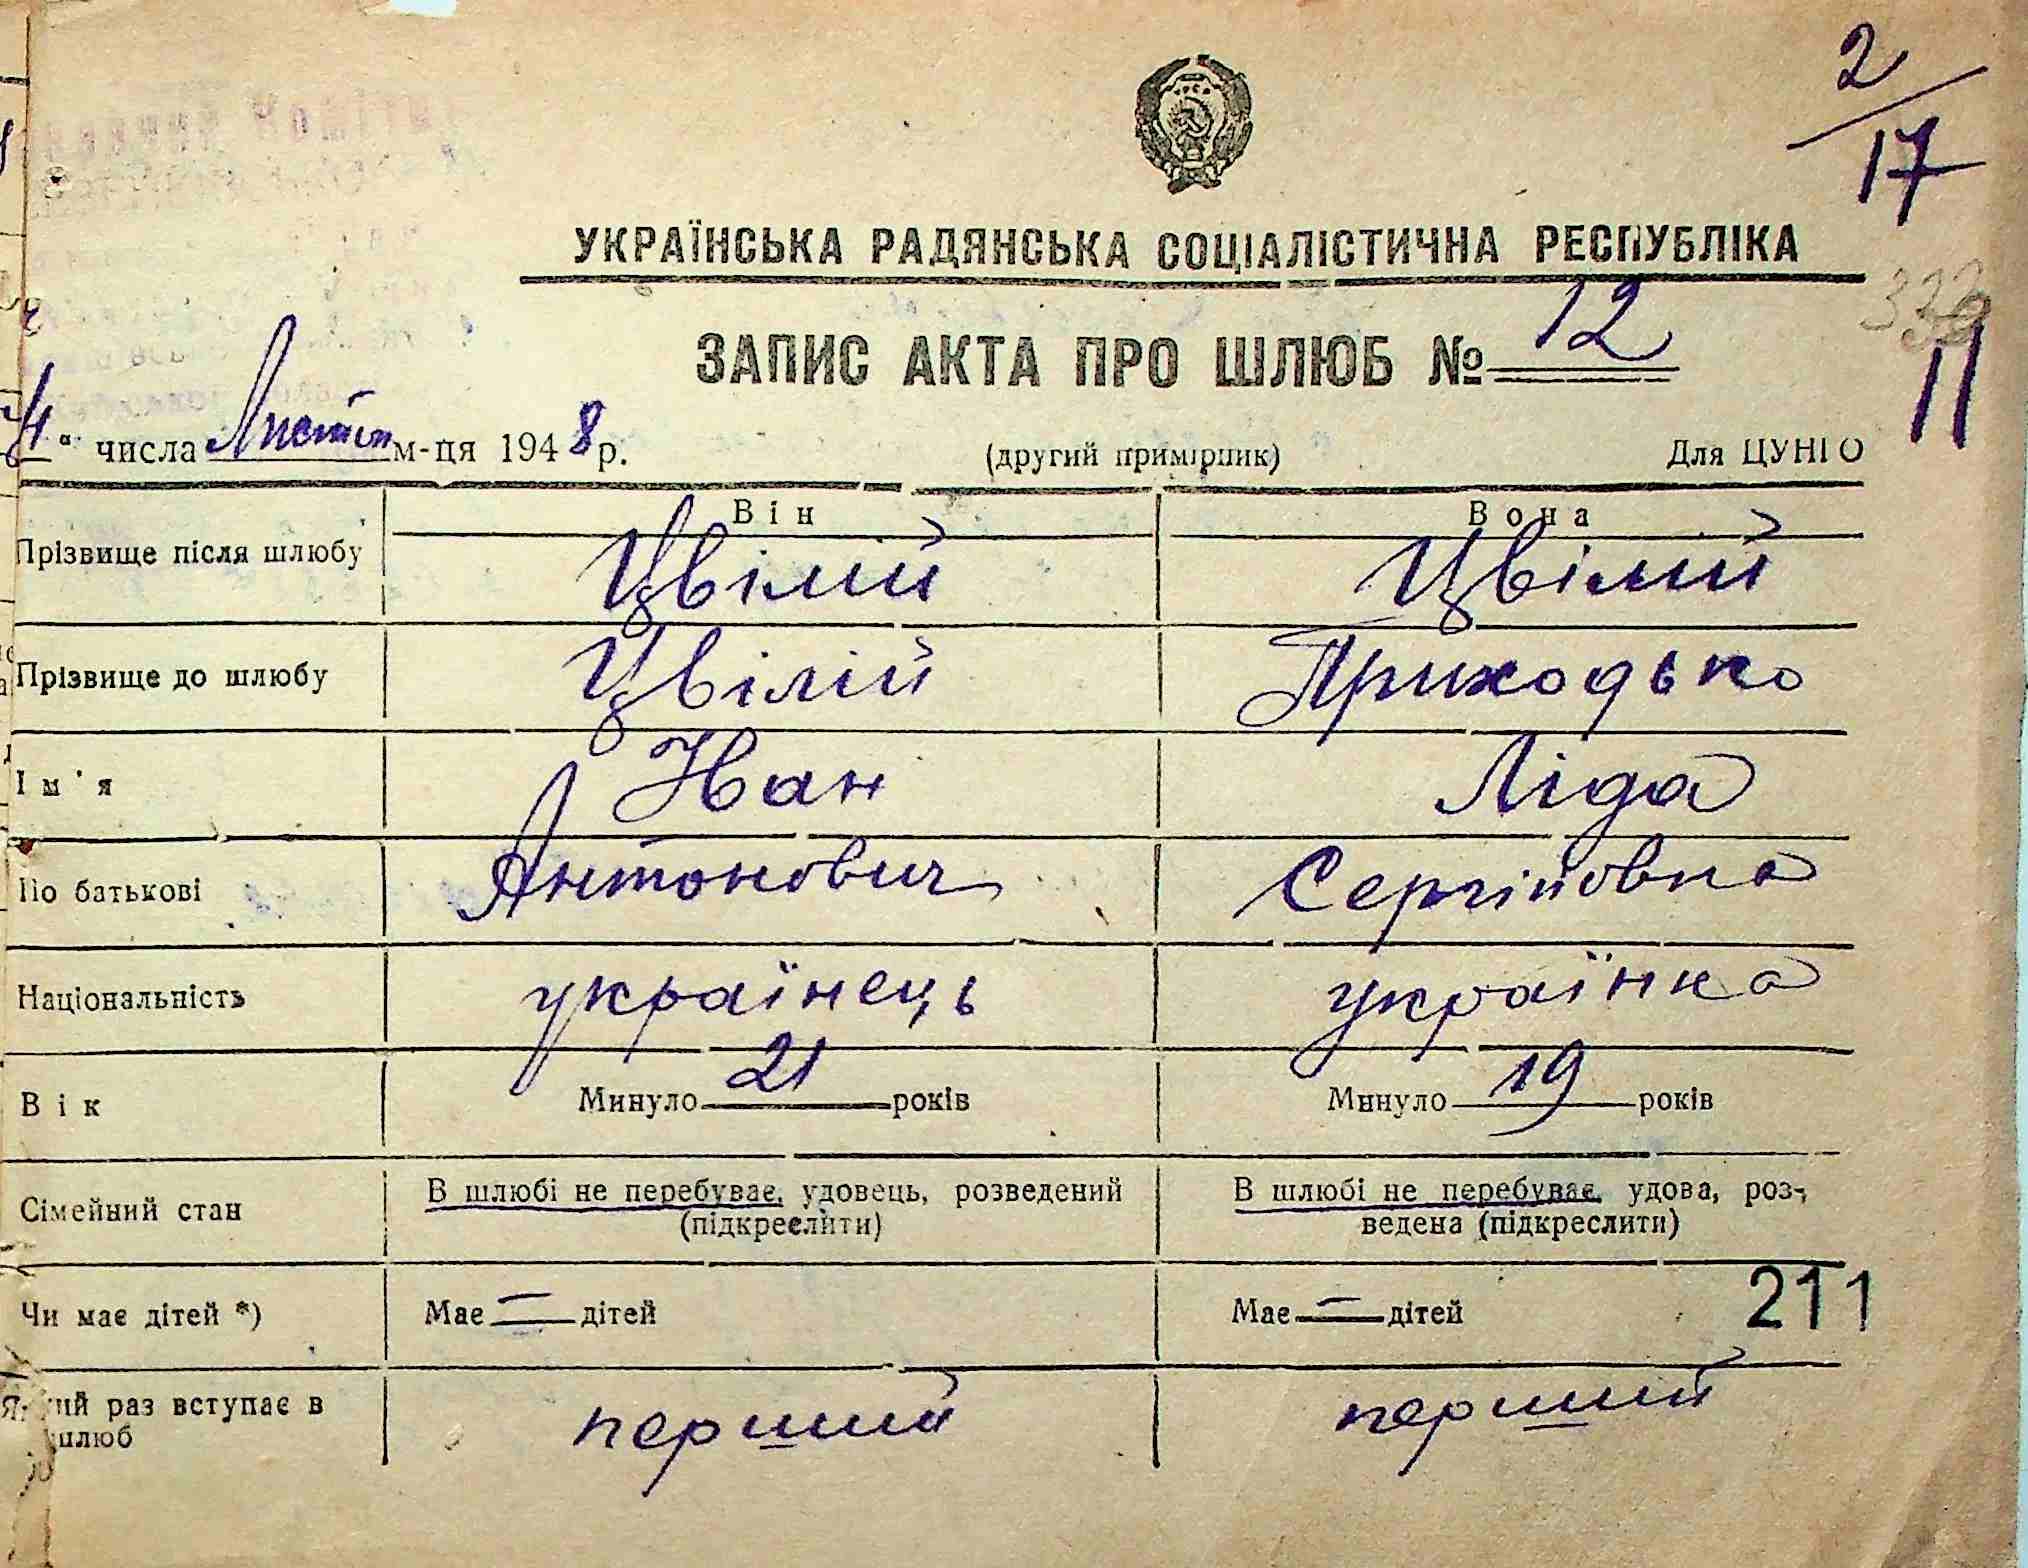 2/17
УКРАЇНСЬКА РАДЯНСЬКА СОЦІАЛІСТИЧНА РЕСПУБЛІКА
ЗАПИС АКТА ПРО ШЛЮБ № 12
11
4 " числа Листоп м-ця 1948 р. (другий примірник) Для ЦУНГО
Він Вона
Прізвище після шлюбу Цвілій Цвілий
Прізвище до шлюбу Цвілій Приходько
Ім'я Іван Ліда
По батькові Антонович Сергіївна
Національність українець українка
Вік Минуло 21 років Минуло 19 років
Сімейний стан В шлюбі не перебуває, удовець, розведений В шлюбі не перебуває, удова, роз-
(підкреслити) ведена (підкреслити)
Чи має дітей *) Має — дітей Має — дітей 211
раз вступає в перший перший
шлюб